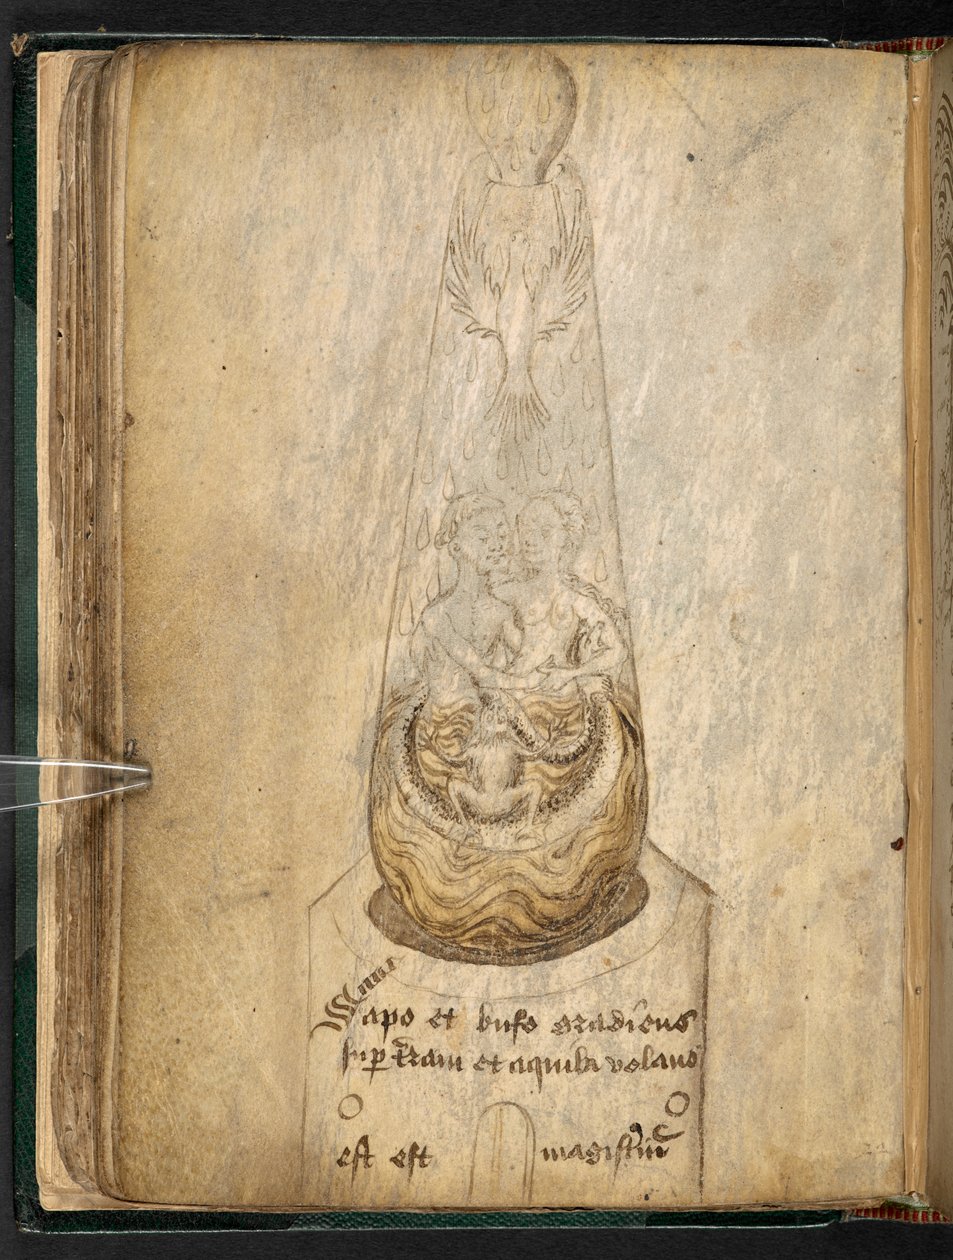 Sapo et bufo gradiens
sup tram et aquila volans
est est magistriu